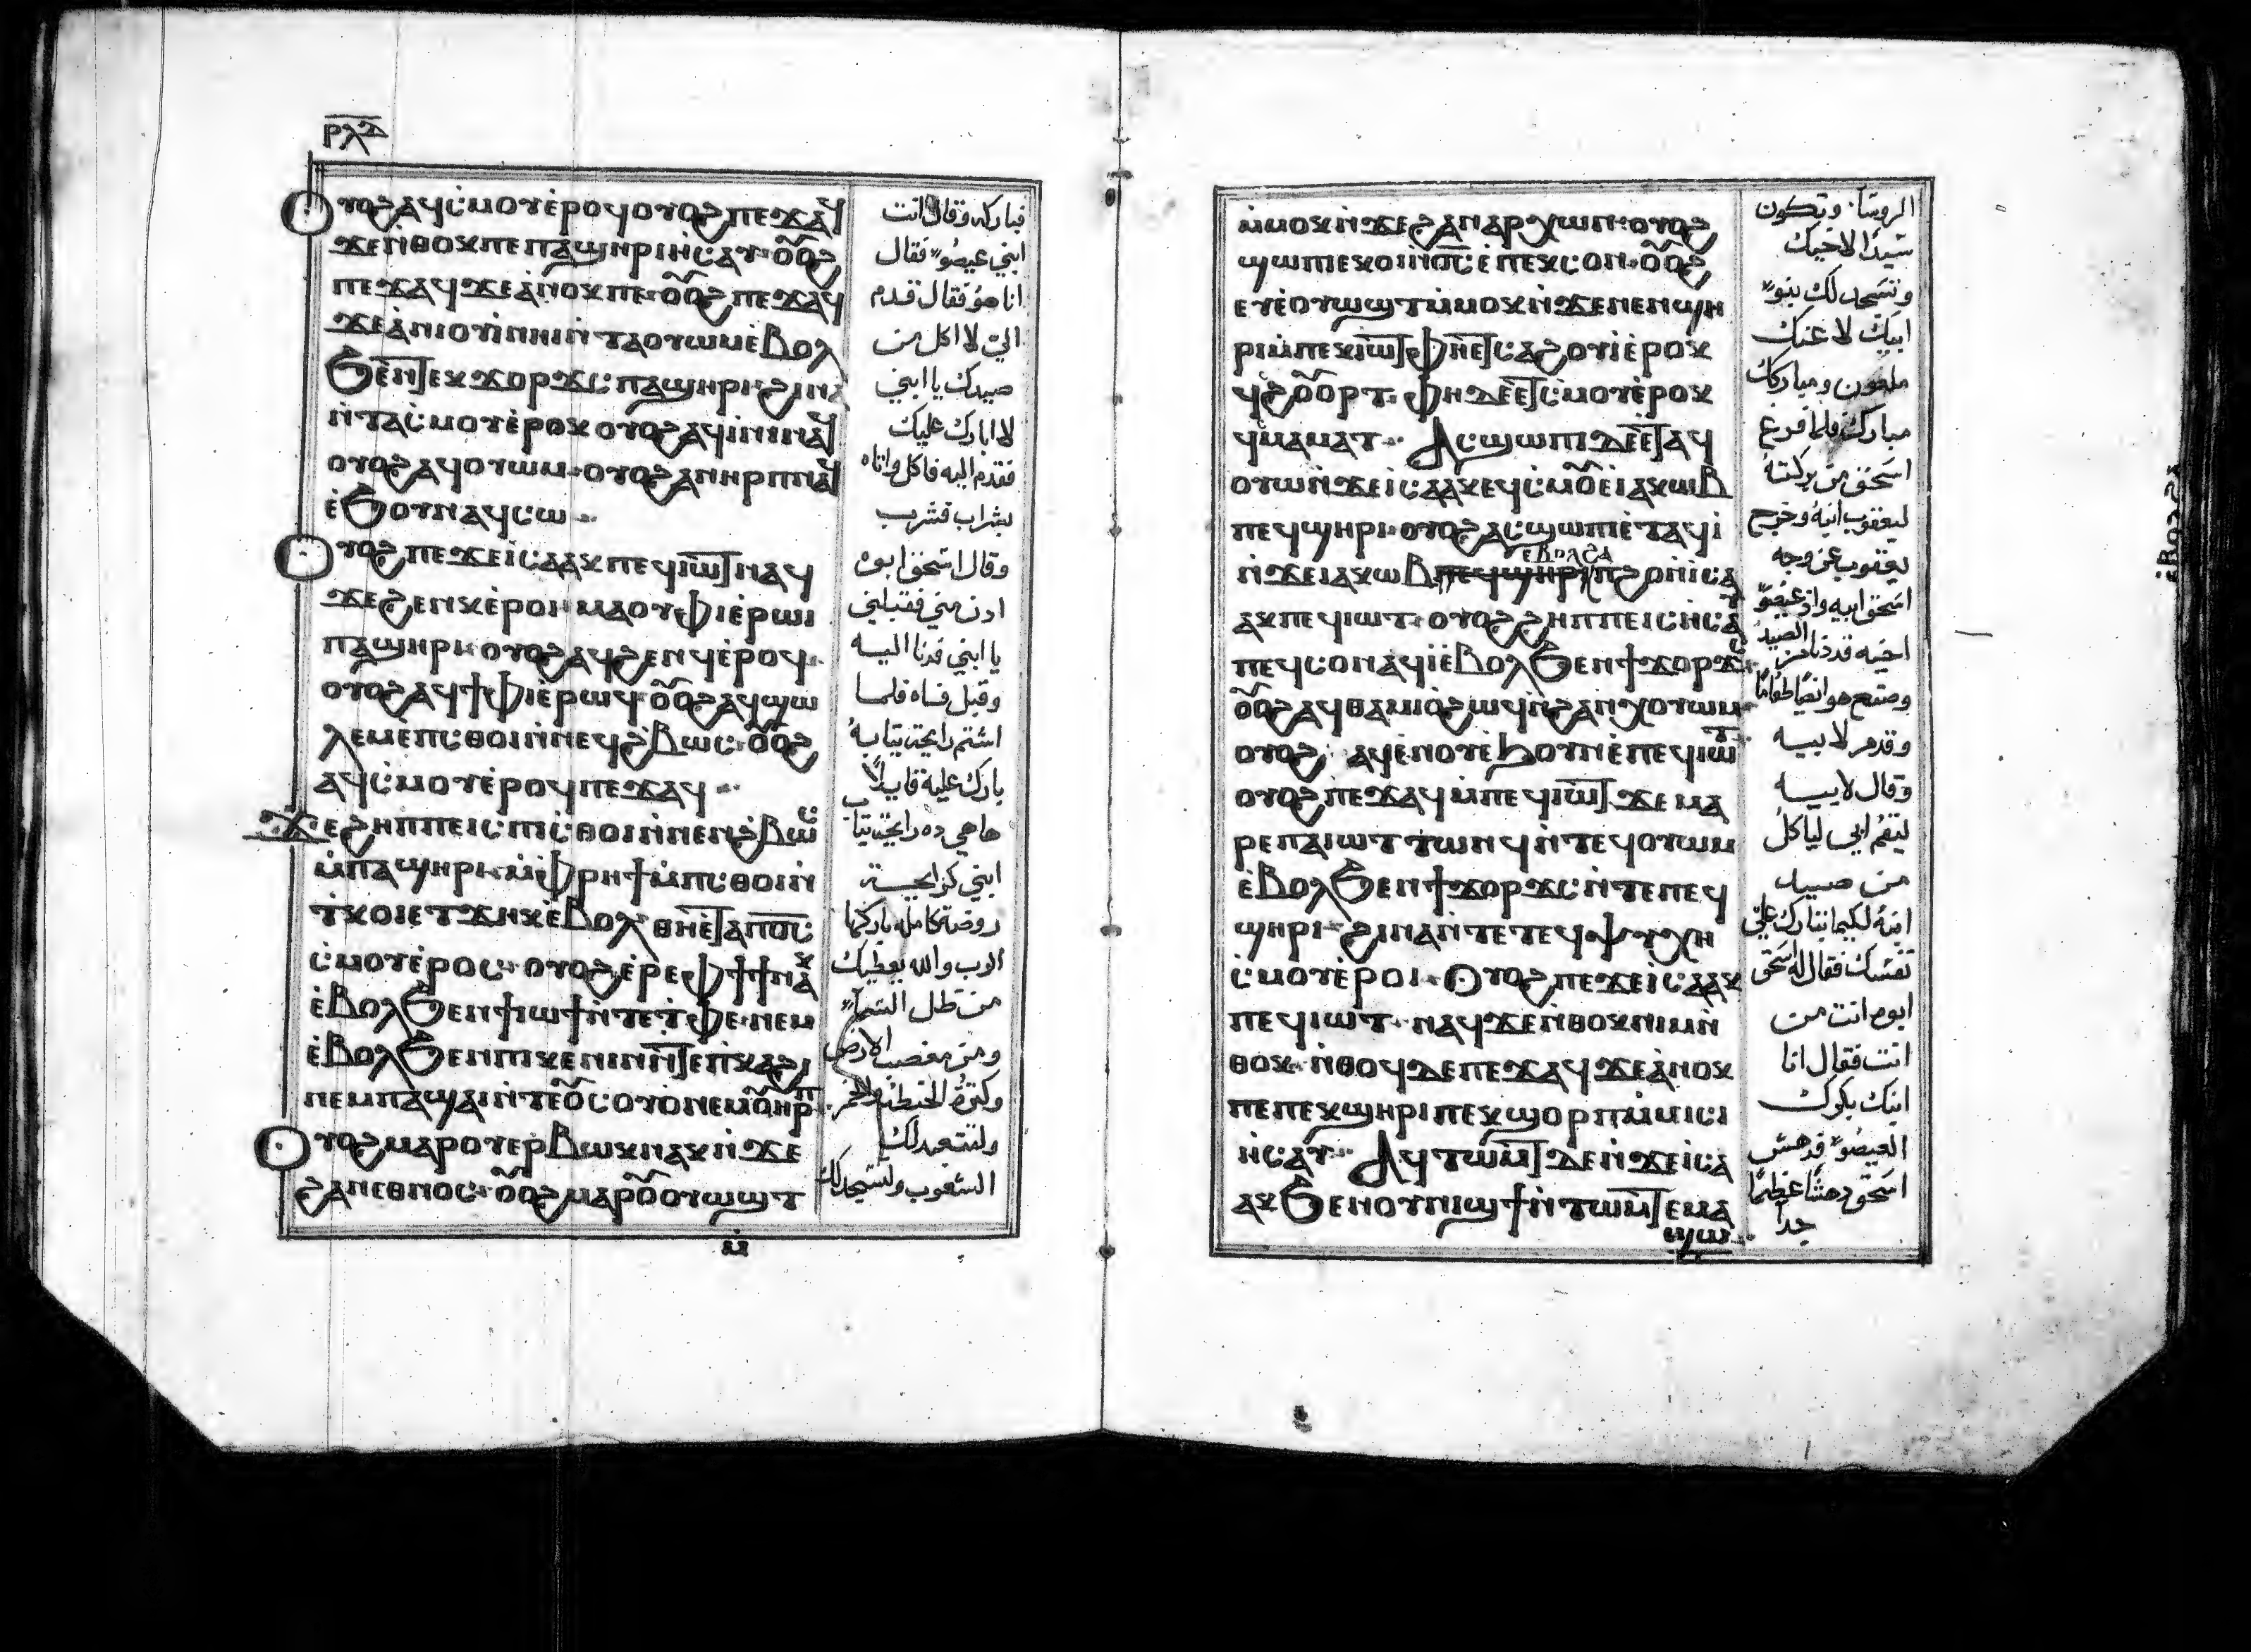 ⲣⲗⲇ
ⲟⲩⲟϩ ⲁϥⲥ̀ⲙⲟⲩ ⲉ̀ⲣⲟϥ ⲟⲩⲟϩ ⲡⲉϫⲁϥ
ϫⲉ ⲛ̀ⲑⲟⲕ ⲡⲉ ⲡⲁϣⲏⲣⲓ ⲏ̀ⲥⲁⲩ· ⲟⲟ̅ϩ
ⲡⲉϫⲁϥ ϫⲉ ⲁ̀ⲛⲟⲕ ⲡⲉ· ⲟⲟ̅ϩ ⲡⲉϫⲁϥ
ϫⲉ ⲁ̀ⲛⲓⲟⲩⲓ̀ ⲛⲏⲓ ⲛ̀ⲧⲁⲟⲩⲱⲙ ⲉ̀ⲃⲟⲗ
ϧⲉⲛ ⲧⲉⲕϫⲟⲣϫⲥ ⲡⲁϣⲏⲣⲓ· ϩⲓⲛⲁ
ⲛ̀ⲧⲁⲥ̀ⲙⲟⲩ ⲉ̀ⲣⲟⲕ ⲟⲩⲟϩ ⲁϥⲓ̀ⲛⲓ ⲛⲁϥ
ⲟⲩⲟϩ ⲁϥⲟⲩⲱⲙ· ⲟⲩⲟϩ ⲁⲛⲏⲣⲡ ⲛⲁϥ
ⲉ̀ϧⲟⲩⲛ ⲁϥⲥⲱ
ⲟⲩⲟϩ ⲡⲉϫⲉ ⲓⲥⲁⲁⲕ ⲡⲉϥⲓⲱⲧ ⲛⲁϥ
ϫⲉ ϩⲉⲛⲕ ⲉ̀ⲣⲟⲓ ⲙⲁ ⲟⲩⲫⲓ ⲉ̀ⲣⲱⲓ
ⲡⲁϣⲏⲣⲓ· ⲟⲩⲟϩ ⲁϥϩⲉⲛϥ ⲉ̀ⲣⲟϥ
ⲟⲩⲟϩ ⲁϥϯⲫⲓ ⲉ̀ⲣⲱϥ· ⲟⲟ̅ϩ ⲁϥϣⲱ
ⲗⲉⲙ ⲉ̀ⲡⲥ̀ⲑⲟⲓ ⲛ̀ⲛⲉϥϩⲃⲱⲥ· ⲟⲟ̅ϩ
ⲁϥⲥ̀ⲙⲟⲩ ⲉ̀ⲣⲟϥ ⲡⲉϫⲁϥ
ϫⲉ ϩⲏⲡⲡⲉ ⲓⲥ ⲡⲓⲥ̀ⲑⲟⲓ ⲛ̀ⲛⲉⲛϩⲃⲱⲥ
ⲙ̀ⲡⲁϣⲏⲣⲓ· ⲙ̀ⲫⲣⲏϯ ⲙ̀ⲡⲥ̀ⲑⲟⲓ ⲛ̀
ⲧⲕⲟⲓ ⲉⲧϫⲏⲕ ⲉ̀ⲃⲟⲗ ⲑⲏ ⲉ̀ⲧⲁ ⲡⲟ̅ⲥ̅
ⲥ̀ⲙⲟⲩ ⲉ̀ⲣⲟⲥ· ⲟⲩⲟϩ ⲉ̀ⲣⲉ ⲫϯ ϯ ⲛⲁⲕ
ⲉ̀ⲃⲟⲗ ϧⲉⲛ ϯⲱϯ ⲛ̀ⲧⲉ ⲧ̀ⲫⲉ· ⲛⲉⲙ
ⲉ̀ⲃⲟⲗ ϧⲉⲛ ⲡⲓⲕⲉⲛⲓ ⲛ̀ⲧⲉ ⲡⲕⲁϩⲓ
ⲛⲉⲙ ⲡⲁϣⲁⲓ ⲛ̀ⲧⲉ ⲟⲩⲥⲟⲩⲟ ⲛⲉⲙ ⲟⲩⲏⲣⲡ
ⲟⲩⲟϩ ⲙⲁⲣⲟⲩⲉⲣⲃⲱⲕ ⲛⲁⲕ ⲛ̀ϫⲉ
ϩⲁⲛⲉⲑⲛⲟⲥ· ⲟⲟ̅ϩ ⲙⲁⲣⲟⲩⲟⲩⲱϣⲧ
ⲙ̀
فباركه وقال انت
ابني عيصو فقال
انا هو فقال قدم
الي لاكل من
صيدك يا ابني
لابارك عليك
فقدم اليه فاكل واتاه
بشراب فشرب
وقال اسحق ابوه
ادن مني فقبلني
يا ابني فدنا اليه
وقبل فاه فلما
اشتم رايحة ثيابه
بارك عليه قايلاً
ها هي ده رايحة ثياب
ابني كرايحة
روضة كامله باركها
الرب والله يعطيك
من طل السما
ومن خصب الارض
وكثرة الحنطة والخمر
ولتتعبد لك
الشعوب وتسجد لك
ⲙ̀ⲙⲟⲕ ⲛ̀ϫⲉ ϩⲁⲛⲁⲣⲭⲱⲛ· ⲟⲩⲟϩ
ϣⲱⲡⲓ ⲉⲕⲟⲓ ⲛ̀ⲟ̅ⲥ̅ ⲉ̀ⲡⲉⲕⲥⲟⲛ· ⲟⲟ̅ϩ
ⲉⲩⲉ̀ⲟⲩⲱϣⲧ ⲙ̀ⲙⲟⲕ ⲛ̀ϫⲉ ⲛⲉⲛϣⲏ
ⲣⲓ ⲙ̀ⲡⲉⲕⲓⲱⲧ ⲫⲏ ⲉⲧⲥⲁϩⲟⲩⲓ ⲉ̀ⲣⲟⲕ
ϥ̀ⲥϩⲟⲟⲩⲣⲧ· ⲫⲏ ⲇⲉ ⲉⲧⲥ̀ⲙⲟⲩ ⲉ̀ⲣⲟⲕ
ϥ̀ⲥⲙⲁⲙⲁⲧ· Ⲁⲥϣⲱⲡⲓ ⲇⲉ ⲉ̀ⲧⲁϥ
ⲟⲩⲱ ⲛ̀ϫⲉ ⲓⲥⲁⲁⲕ ⲉϥⲥ̀ⲙⲟⲩ ⲉ̀ⲓⲁⲕⲱⲃ
ⲡⲉϥϣⲏⲣⲓ· ⲟⲩⲟϩ ⲁⲥϣⲱⲡⲓ ⲉ̀ⲧⲁϥⲓ̀
ⲛ̀ϫⲉ ⲓⲁⲕⲱⲃ ⲉⲃⲟⲗϩⲁ ⲡϩⲟ ⲛ̀ⲓⲥⲁ
ⲁⲕ ⲡⲉϥⲓⲱⲧ· ⲟⲩⲟϩ ϩⲏⲡⲡⲉ ⲓⲥ ⲏ̀ⲥⲁⲩ
ⲡⲉϥⲥⲟⲛ ⲁϥⲓ̀ ⲉ̀ⲃⲟⲗ ϧⲉⲛ ϯϫⲟⲣϫⲥ
ⲟⲟ̅ϩ ⲁϥⲑⲁⲙⲓⲟ ϩⲱϥ ⲛ̀ϩⲁⲛϭⲓⲟⲩⲱⲙ
ⲟⲩⲟϩ ⲁϥⲉ̀ⲛⲟⲩ ⲉ̀ϧⲟⲩⲛ ⲉ̀ⲡⲉϥⲓⲱⲧ
ⲟⲩⲟϩ ⲡⲉϫⲁϥ ⲙ̀ⲡⲉϥⲓⲱⲧ ϫⲉ ⲙⲁ
ⲣⲉ ⲡⲁⲓⲱⲧ ⲧⲱⲛϥ ⲛ̀ⲧⲉϥⲟⲩⲱⲙ
ⲉ̀ⲃⲟⲗ ϧⲉⲛ ϯϫⲟⲣϫⲥ ⲛ̀ⲧⲉ ⲡⲉϥ
ϣⲏⲣⲓ· ϩⲓⲛⲁ ⲛ̀ⲧⲉ ⲧⲉϥⲯⲩⲭⲏ
ⲥ̀ⲙⲟⲩ ⲉ̀ⲣⲟⲓ· Ⲟⲩⲟϩ ⲡⲉϫⲉ ⲓⲥⲁⲁⲕ
ⲡⲉϥⲓⲱⲧ· ⲛⲁϥ ϫⲉ ⲛ̀ⲑⲟⲕ ⲛⲓⲙ ⲛ̀
ⲑⲟⲕ· ⲛ̀ⲑⲟϥ ⲇⲉ ⲡⲉϫⲁϥ ϫⲉ ⲁ̀ⲛⲟⲕ
ⲡⲉ ⲡⲉⲕϣⲏⲣⲓ ⲡⲉⲕϣⲟⲣⲡ ⲙ̀ⲙⲓⲥⲓ
ⲏ̀ⲥⲁⲩ· Ⲁϥⲧⲱⲙⲧ ⲇⲉ ⲛ̀ϫⲉ ⲓⲥⲁ
ⲁⲕ ϧⲉⲛ ⲟⲩⲛⲓϣϯ ⲛ̀ⲧⲱⲙⲧ ⲉⲙⲁ
ϣⲱ
الروسا وتكون
سيداً لاخيك
وتسجد لك بنو
ابيك لاعنك
ملعون ومباركك
مبارك فلما فرغ
اسحق من بركته
ليعقوب ابنه وخرج
يعقوب عن وجه
اسحق ابيه واذ عيصو
اخيه قد دنا من الصيد
وصنع هو ايضاً طعاماً
وقدم لابيه
وقال لابيه
ليقم ابي لياكل
من صيد
ابنه لكيما تبارك علي
نفسك فقال له اسحق
ابوه انت من
انت فقال انا
ابنك بكرك
العيصو فدهش
اسحق دهشاً عظيماً
جداً